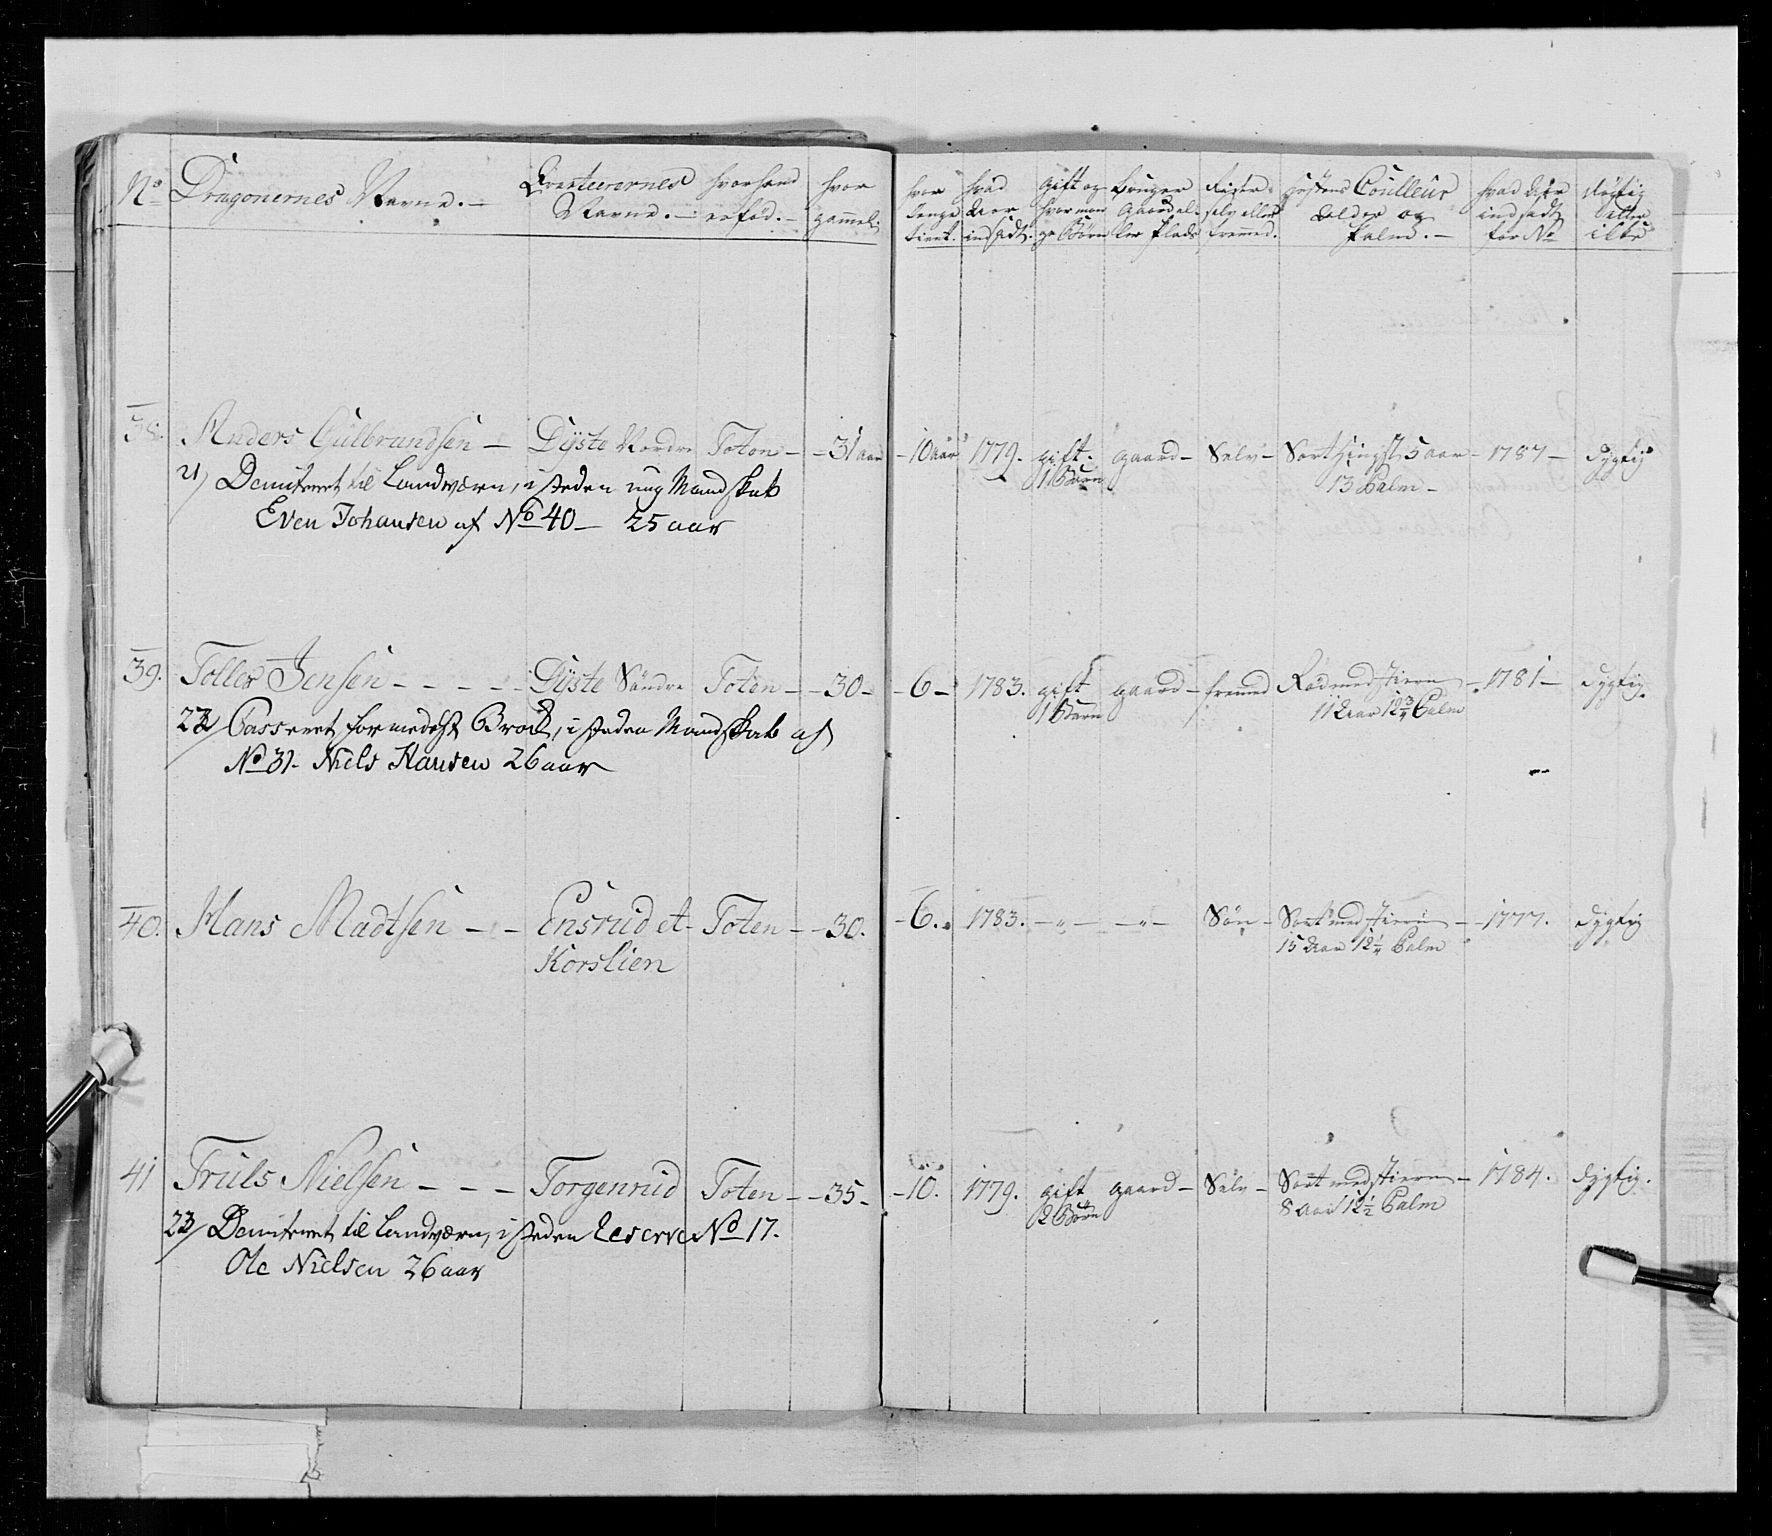 No Dragonernes Navne.— Qvarteerernes Navne.— hvor hand er fød.— hvor gammel. hvor lenge tient. hvad Aar indsadt. Gift og hvor mange Börn Bruger Gaard eller Plads Rister selv eller fremmed. hestens Coulleur Alder og Palm.— hvad Aar indsadt for No dygtig eller ikke
38. Anders Gulbrandsen — Dyste Nordre Toten — 31 aar — 10 aar 1779. gift. gaard — Selv — Sort Hingst 5 aar — 1787 — dygtig
1 Barn 13 Palm —
21/ Demitteret til Landværn, i steden ung Mandskab
Even Johansen af No 40 — 25 aar
39. Toller Jensen - - - - - Dyste Søndre Toten — 30 — 6 — 1783. gift gaard — fremmed Rød med stiern — 1781 — dygtig.
1 Barn 11 Aar 12 3/4 Palm
22/ Casseret formedelst Brok, i steden Mandskab af
No 31. Niels Hansen 26 aar
40. Hans Madtsen - - - Ensrud et Toten — 30. — 6. 1783. — " — — " — Søn — Sort med stiern — 1777. dygtig
Korslien 15 Aar 12 1/4 Palm
41 Truls Nielsen - - - Torgenrud Toten — 35 — 10. 1779. gift gaard — Selv — Sort med stiern — 1784. dygtig.
2 Børn 8 Aar 12 1/2 Palm
23/ Demitteret til Landværn, i steden Reserve No 17.
Ole Nielsen 26 aar